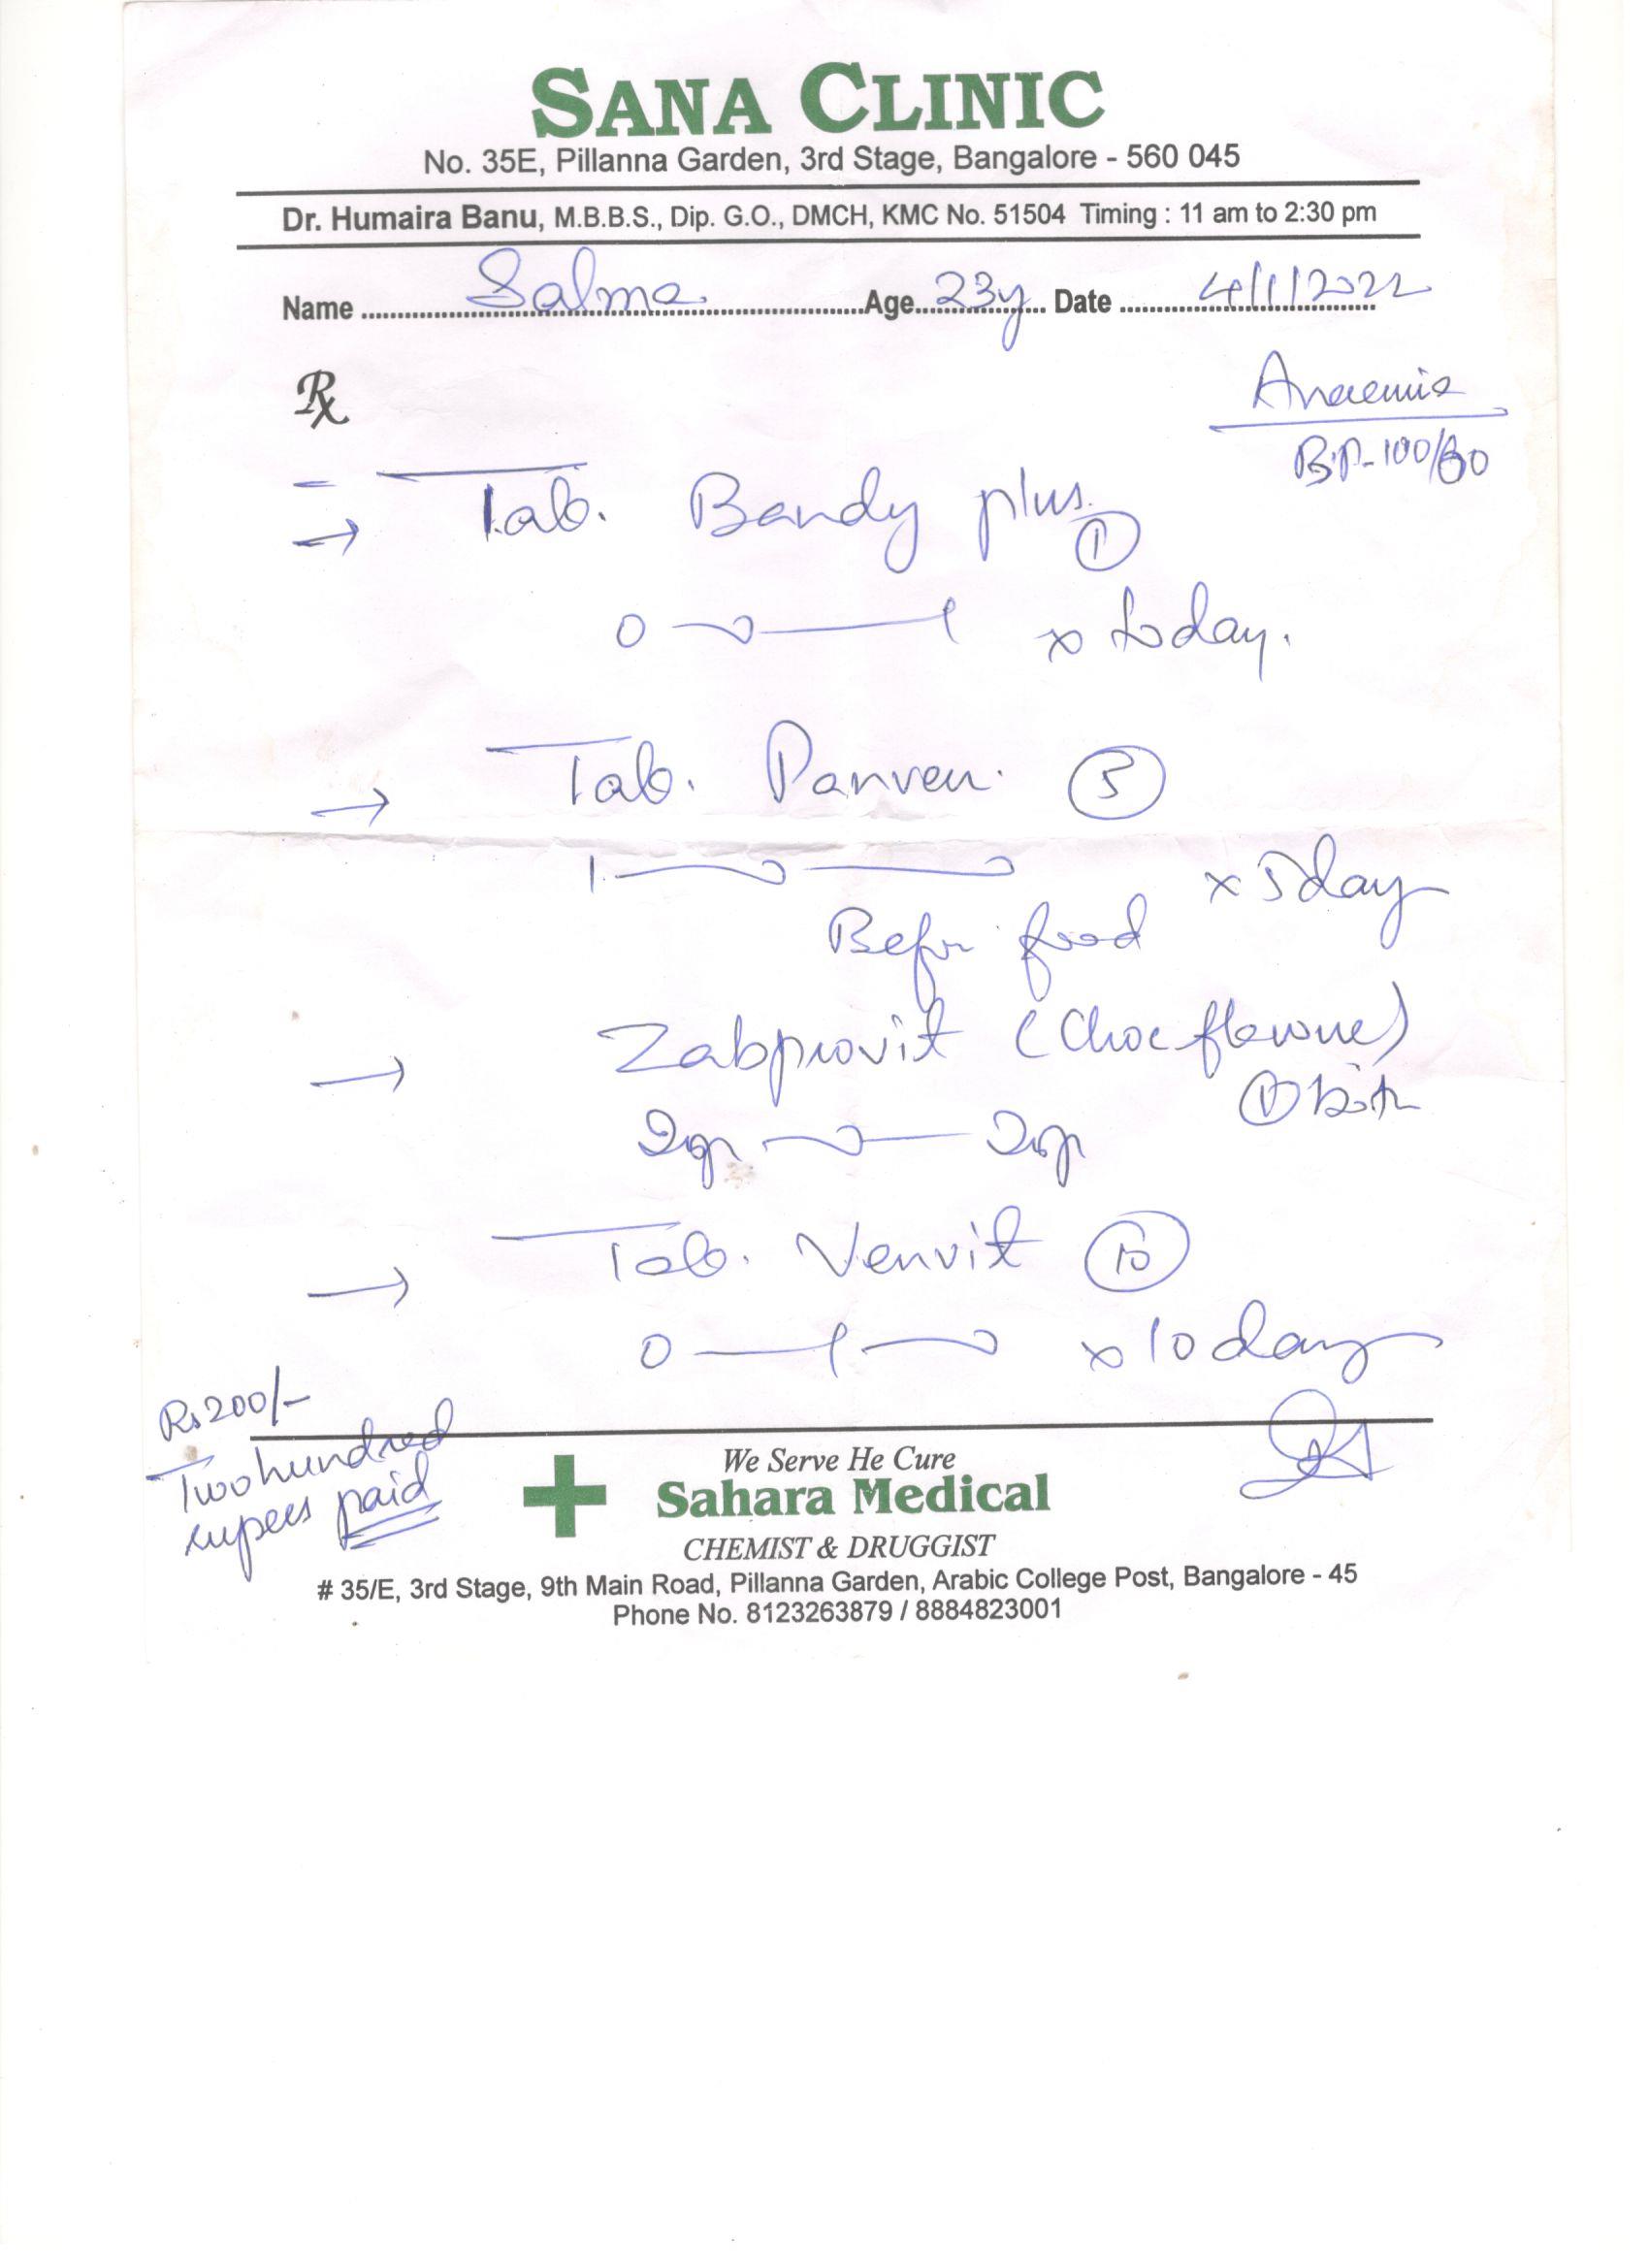 SANA CLINIC
No. 35E, Pillanna Garden, 3rd Stage, Bangalore - 560 045
Dr. Humaira Banu, M.B.B.S., Dip. G.O., DMCH, KMC No. 51504 Timing : 11 am to 2:30 pm
Name Salma Age 23y Date 4/1/2022
Rx
Anaemia
B.P- 100/60
→ Tab. Bandy plus. ①
0 — 0 — 1 x today.
→ Tab. Panven. ⑤
1 — 0 — 0 x 5 day
Befr food
→ Zabprovit (Choc flavour)
①
0
→ Tab. Venvit ⑩
0 — 1 — 0 x 10 day
Rs 200/-
Two hundred
rupees paid
We Serve He Cure
Sahara Medical
CHEMIST & DRUGGIST
# 35/E, 3rd Stage, 9th Main Road, Pillanna Garden, Arabic College Post, Bangalore - 45
Phone No. 8123263879 / 8884823001